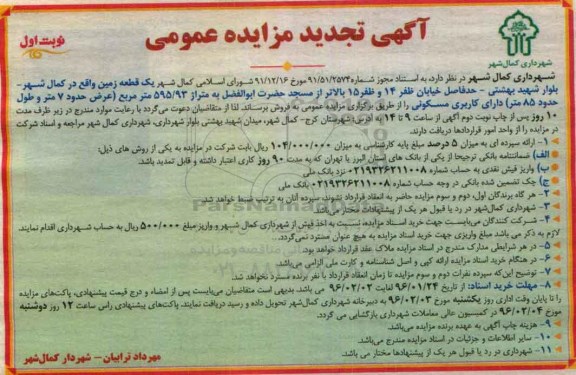 آگهی تجدید مزایده عمومی
نوبت اول
شهرداری کمال‌شهر
شهرداری کمال شهر در نظر دارد، به استناد مجوز شماره ۹۱/۵۱/۲۵۷۴ مورخ ۹۱/۱۲/۱۶ شورای اسلامی کمال شهر یک قطعه زمین واقع در کمال شهر-
بلوار شهید بهشتی - حدفاصل خیابان ظفر ۱۴ و ظفر ۱۵ بالاتر از مسجد حضرت ابوالفضل به متراژ ۵۹۵/۹۳ متر مربع (عرض حدود ۷ متر و طول
حدود ۸۵ متر) دارای کاربری مسکونی را از طریق برگزاری مزایده عمومی به فروش برساند. لذا از متقاضیان دعوت می‌گردد با رعایت موارد مندرج در زیر ظرف مدت
۱۰ روز پس از چاپ نوبت دوم آگهی از ساعت ۹ تا ۱۴ به آدرس: شهرستان کرج- کمال شهر، میدان شهید بهشتی بلوار شهرداری، شهرداری کمال شهر مراجعه و اسناد شرکت
در مزایده را از واحد امور قراردادها دریافت دارند.
۱- ارائه سپرده ای به میزان ۵ درصد مبلغ پایه کارشناسی به میزان ۱۰۴/۰۰۰/۰۰۰ ریال بابت شرکت در مزایده به یکی از روش های ذیل:
الف) ضمانتنامه بانکی ترجیحا از یکی از بانک های استان البرز یا تهران که به مدت ۹۰ روز کاری اعتبار داشته و قابل تمدید باشد.
ب) واریز فیش نقدی به حساب شماره ۰۲۱۹۳۲۶۲۱۱۰۰۸ نزد بانک ملی
ج) چک تضمین شده بانکی در وجه حساب شماره ۰۲۱۹۳۲۶۲۱۱۰۰۸ بانک ملی
۲- هر گاه برندگان اول، دوم و سوم مزایده حاضر به انعقاد قرارداد نشوند، سپرده آنان به ترتیب ضبط خواهد شد.
۳- شهرداری کمال‌شهر در رد یا قبول هر یک از پیشنهادات مختار می‌باشد.
۴- شرکت کنندگان می‌بایست جهت خرید اسناد مزایده، نسبت به اخذ فیش از شهرداری کمال‌شهر و واریز مبلغ ۵۰۰/۰۰۰ ریال به حساب شهرداری اقدام نمایند.
لازم به ذکر می باشد مبلغ واریزی جهت خرید اسناد مزایده به هیچ عنوان مسترد نمی‌گردد.
۵- در هر شرایطی مدارک مندرج در اسناد مزایده ملاک عقد قرارداد خواهد بود.
۶- در هنگام خرید اسناد مزایده ارائه کپی و اصل شناسنامه و کارت ملی الزامی می‌باشد.
۷- توضیح این‌که سپرده نفرات دوم و سوم مزایده تا زمان انعقاد قرارداد با نفر برنده مسترد نخواهد شد.
۸- مهلت خرید اسناد: از تاریخ ۹۶/۰۱/۲۴ لغایت ۹۶/۰۲/۰۲ می باشد. بدیهی است متقاضیان می‌بایست پس از امضاء و درج قیمت پیشنهادی، پاکت‌های مزایده
را تا پایان وقت اداری روز یکشنبه مورخ ۹۶/۰۲/۰۳ به دبیرخانه شهرداری کمال‌شهر تحویل داده و رسید دریافت نمایند. پاکت‌های پیشنهادی راس ساعت ۱۲ روز دوشنبه
مورخ ۹۶/۰۲/۰۴ در کمیسیون عالی معاملات شهرداری بازگشایی می گردد.
۹- هزینه چاپ آگهی به عهده برنده مزایده می‌باشد.
۱۰- سایر اطلاعات و جزئیات در اسناد مزایده مندرج می‌باشد.
۱۱- شهرداری در رد یا قبول هر یک از پیشنهادها مختار می باشد.
مهرداد ترابیان - شهردار کمال‌شهر